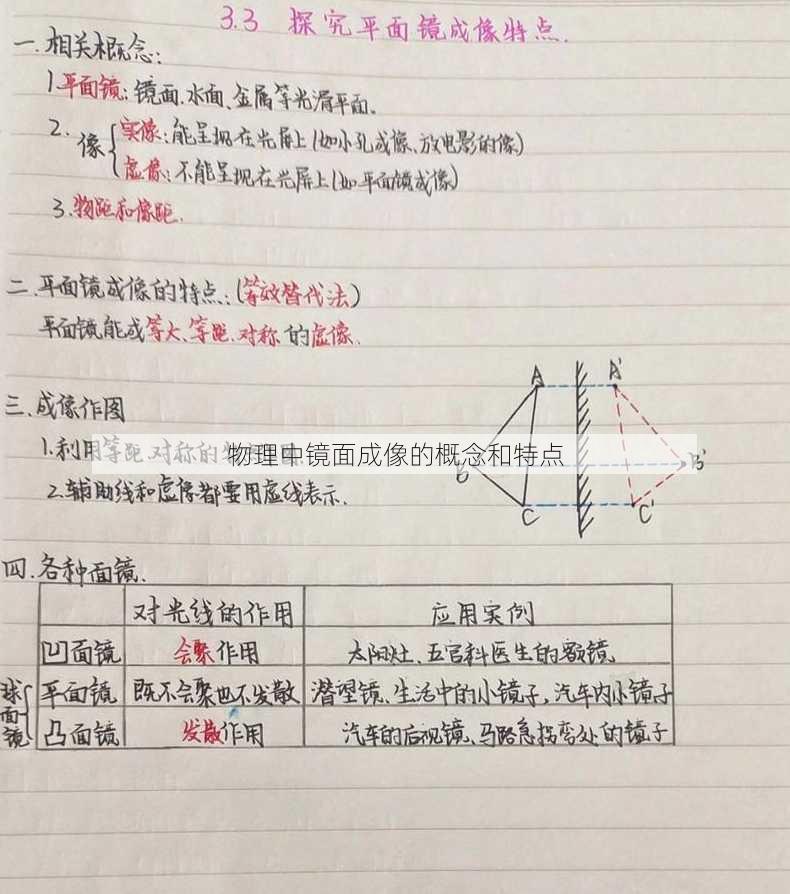 3.3 探究平面镜成像特点.
一.相关概念:
1.平面镜:镜面.水面、金属等光滑平面。
2.像
实像:能呈现在光屏上(如小孔成像、放电影的像)
虚像:不能呈现在光屏上(如平面镜成像)
3.物距和像距.
二.平面镜成像的特点:(等效替代法)
平面镜能成等大、等距.对称的虚像.
三.成像作图
1.利用等距.对称的
物理中镜面成像的概念和特点
2.辅助线和虚像都要用虚线表示.
A A'
B B'
C C'
四.各种面镜.
对光线的作用 应用实例
凹面镜 会聚作用 太阳灶、五官科医生的额镜
平面镜 既不会聚也不发散 潜望镜、生活中的小镜子,汽车内小镜子
凸面镜 发散作用 汽车的后视镜、马路急拐弯处的镜子
球面镜